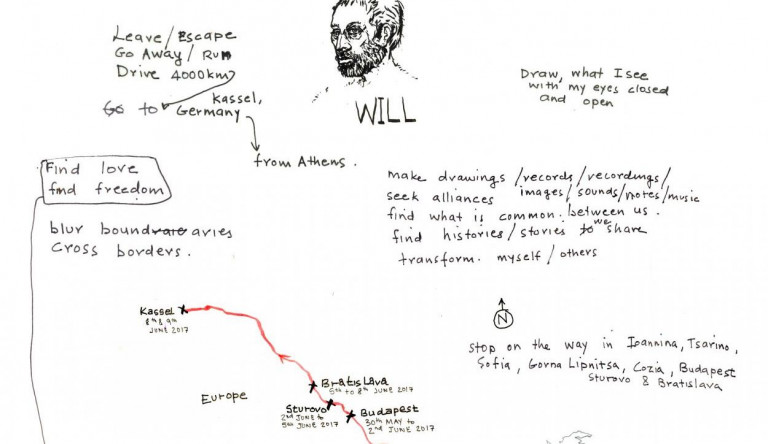 Leave / Escape
Go Away / Run
Drive 4000km
Go to Kassel,
Germany
from Athens.
WILL
Draw, what I see
with my eyes closed
and open
Find love
find freedom
blur boundaries
Cross borders.
make drawings / records / recordings /
images / sounds / notes / music
seek alliances
find what is common between us.
find histories / stories to we share
transform. myself / others
N
stop on the way in Ioannina, Tsarino,
Sofia, Gorna Lipnitsa, Cozia, Budapest
Sturovo & Bratislava
Kassel
8th & 9th
JUNE 2017
Europe
Bratislava
5th to 8th JUNE 2017
Sturovo
2nd JUNE to
5th JUNE 2017
Budapest
30th MAY to
2nd JUNE 2017